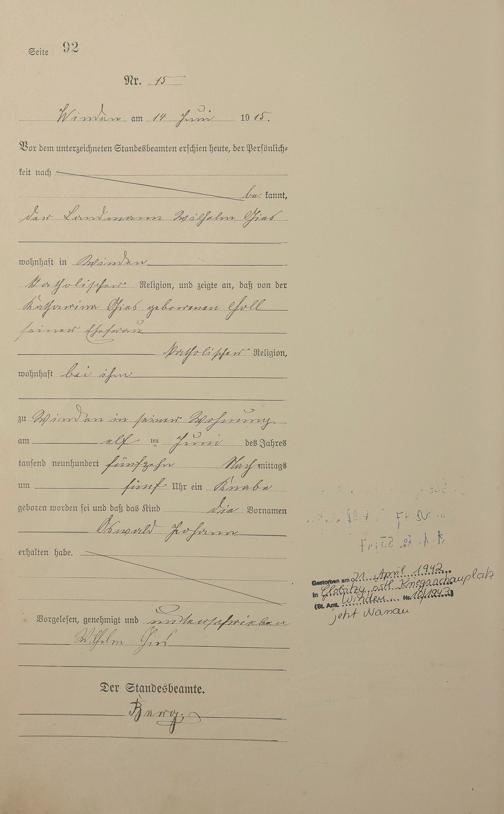 Seite 92
Nr. 15
Winden am 14 Juni 1915.
Vor dem unterzeichneten Standesbeamten erschien heute, der Persönlich-
keit nach
be kannt,
der Landmann Wilhelm Gies
wohnhaft in Winden
katholischer Religion, und zeigte an, daß von der
Katharina Gies geborenen Noll
seiner Ehefrau
katholischer Religion,
wohnhaft bei ihm
zu Winden in seiner Wohnung
am elf ten Juni des Jahres
tausend neunhundert fünfzehn Nach mittags
um fünf Uhr ein Knabe
geboren worden sei und daß das Kind die Vornamen
Oswald Johann
erhalten habe.
Vorgelesen, genehmigt und unterschrieben
Wilhelm Gies
Der Standesbeamte.
Berg.
Gestorben am 21. April 1942
in ostl. Kriegsschauplatz
(St. Amt. Winden Nr. 10/1942)
jetzt Nassau